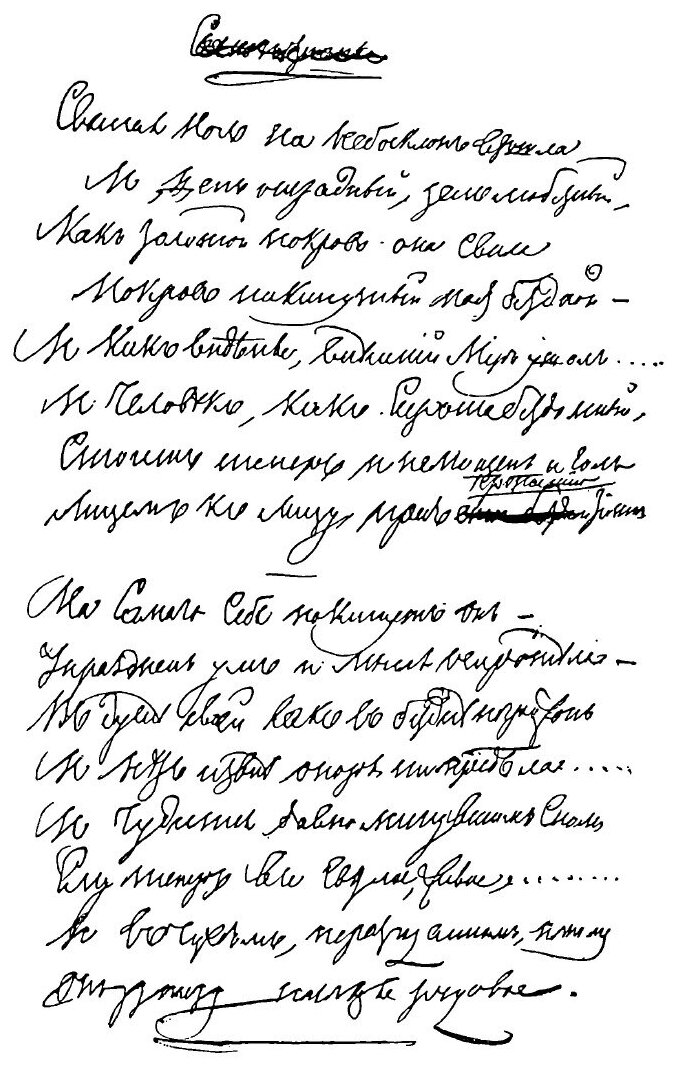 Святая ночь на небосклонъ взошла
И день отрадный, день любезный,
Какъ золотой покровъ она свила
Покровъ накинутый надъ бездной —
И какъ видѣнье, внѣшній Міръ ушелъ.....
И Человѣкъ, какъ Сирота бездомный,
Стоитъ теперь и немощенъ и голъ
Лицемъ къ лицу, предъ пропастію
На Самаго Себя покинутъ онъ —
Упраздненъ умъ и мысль осиротѣла —
Въ душѣ своей какъ въ безднѣ погружонъ
И нѣтъ извнѣ опоры ни предѣла......
И чудится давно минувшимъ Сномъ
Ему теперь все свѣтлое, живое.........
И въ чуждомъ, неразгаданномъ, ночномъ
Онъ узнаетъ наслѣдье родовое.